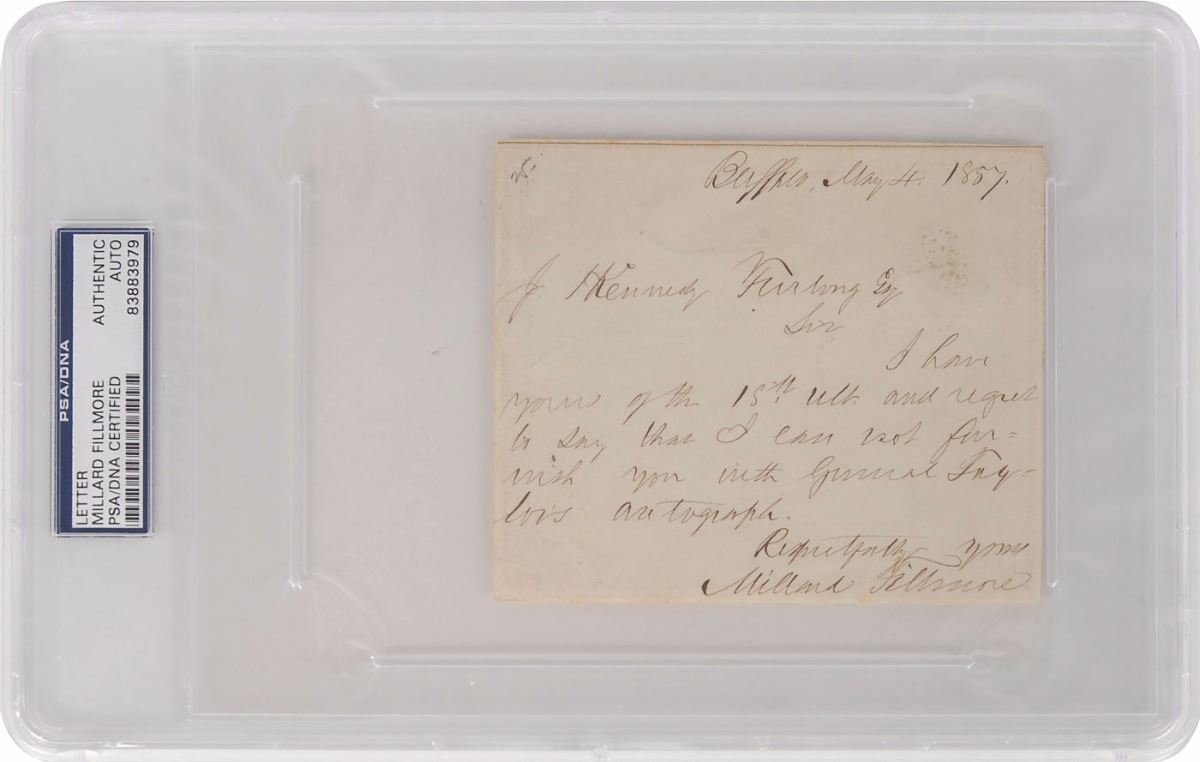 PSA/DNA
LETTER
MILLARD FILLMORE
PSA/DNA CERTIFIED
AUTHENTIC
AUTO
83883979
Buffalo, May 4. 1857.
J. HKennedy Furlong Esq
Sir
I have
yours of the 15th. ult. and regret
to say that I can not fur=
nish you with General Tay=
lor's autograph.
Respectfully yours
Millard Fillmore